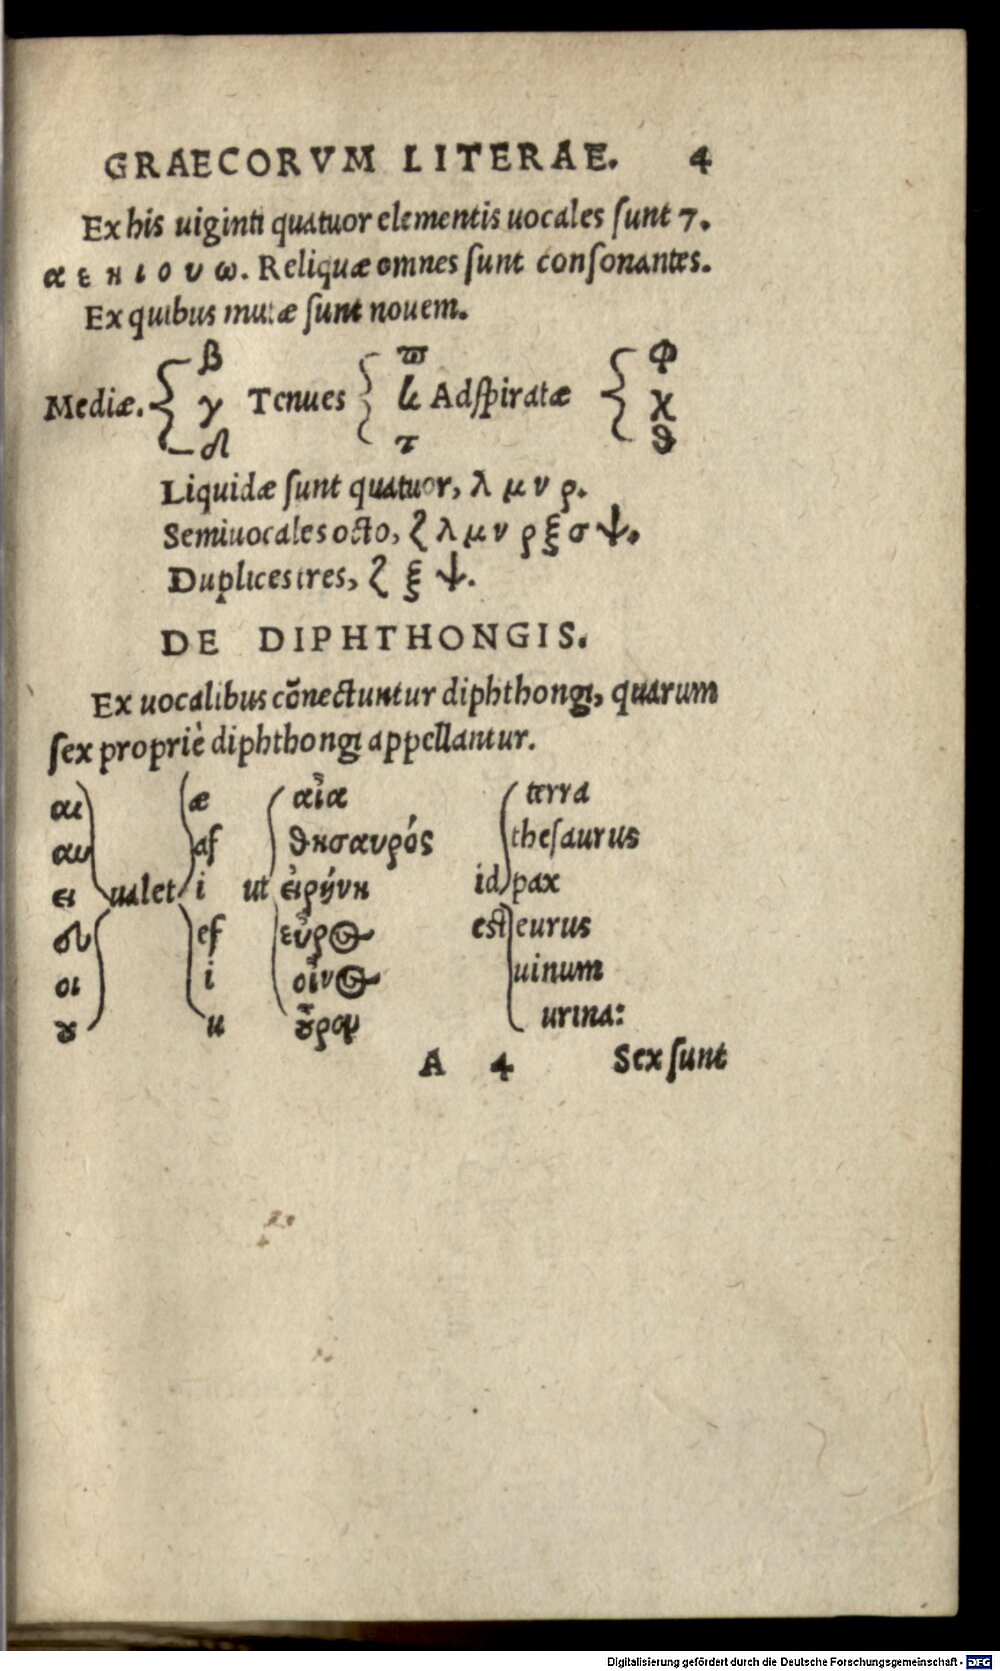 GRAECORVM LITERAE. 4
Ex his uiginti quatuor elementis uocales ſunt 7.
α ε η ι ο υ ω. Reliquæ omnes ſunt conſonantes.
Ex quibus mutæ ſunt nouem.
β ϖ φ
Mediæ. γ Tenues κ Adſpiratæ χ
δ τ ϑ
Liquidæ ſunt quatuor, λ μ ν ρ.
Semiuocales octo, ζ λ μ ν ρ ξ σ ψ.
Duplices tres, ζ ξ ψ.
DE DIPHTHONGIS.
Ex uocalibus cõnectuntur diphthongi, quarum
ſex propriè diphthongi appellantur.
αι æ αἶα terra
αυ af ϑησαυρός theſaurus
ει ualet i ut εἰρήνη id pax
ευ ef εὖρος est eurus
οι i οἶνος uinum
ȣ u ȣ̃ρον urina:
A 4 Sex ſunt
Digitalisierung gefördert durch die Deutsche Forschungsgemeinschaft - DFG